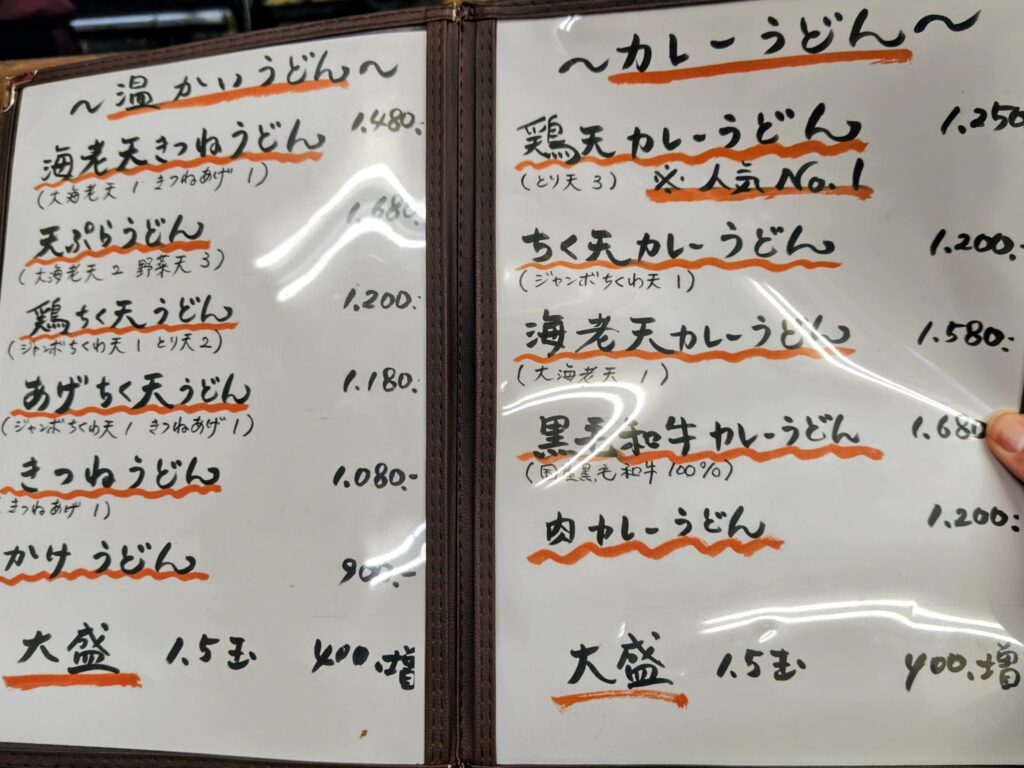 ～温かいうどん～
海老天きつねうどん 1.480.-
(大海老天 1 きつねあげ 1)
天ぷらうどん 1.680.-
(大海老天 2 野菜天 3)
鶏ちく天うどん 1.200.-
(ジャンボちくわ天 1 とり天 2)
あげちく天うどん 1.180.-
(ジャンボちくわ天 1 きつねあげ 1)
きつねうどん 1.080.-
きつねあげ 1)
かけうどん 900.-
大盛 1.5玉 400.増
～カレーうどん～
鶏天カレーうどん 1.250
(とり天 3) ※人気No.1
ちく天カレーうどん 1.200.-
(ジャンボちくわ天 1)
海老天カレーうどん 1.580.-
(大海老天 1)
黒毛和牛カレーうどん 1.680
(国産黒毛和牛 100%)
肉カレーうどん 1.200.-
大盛 1.5玉 400.増